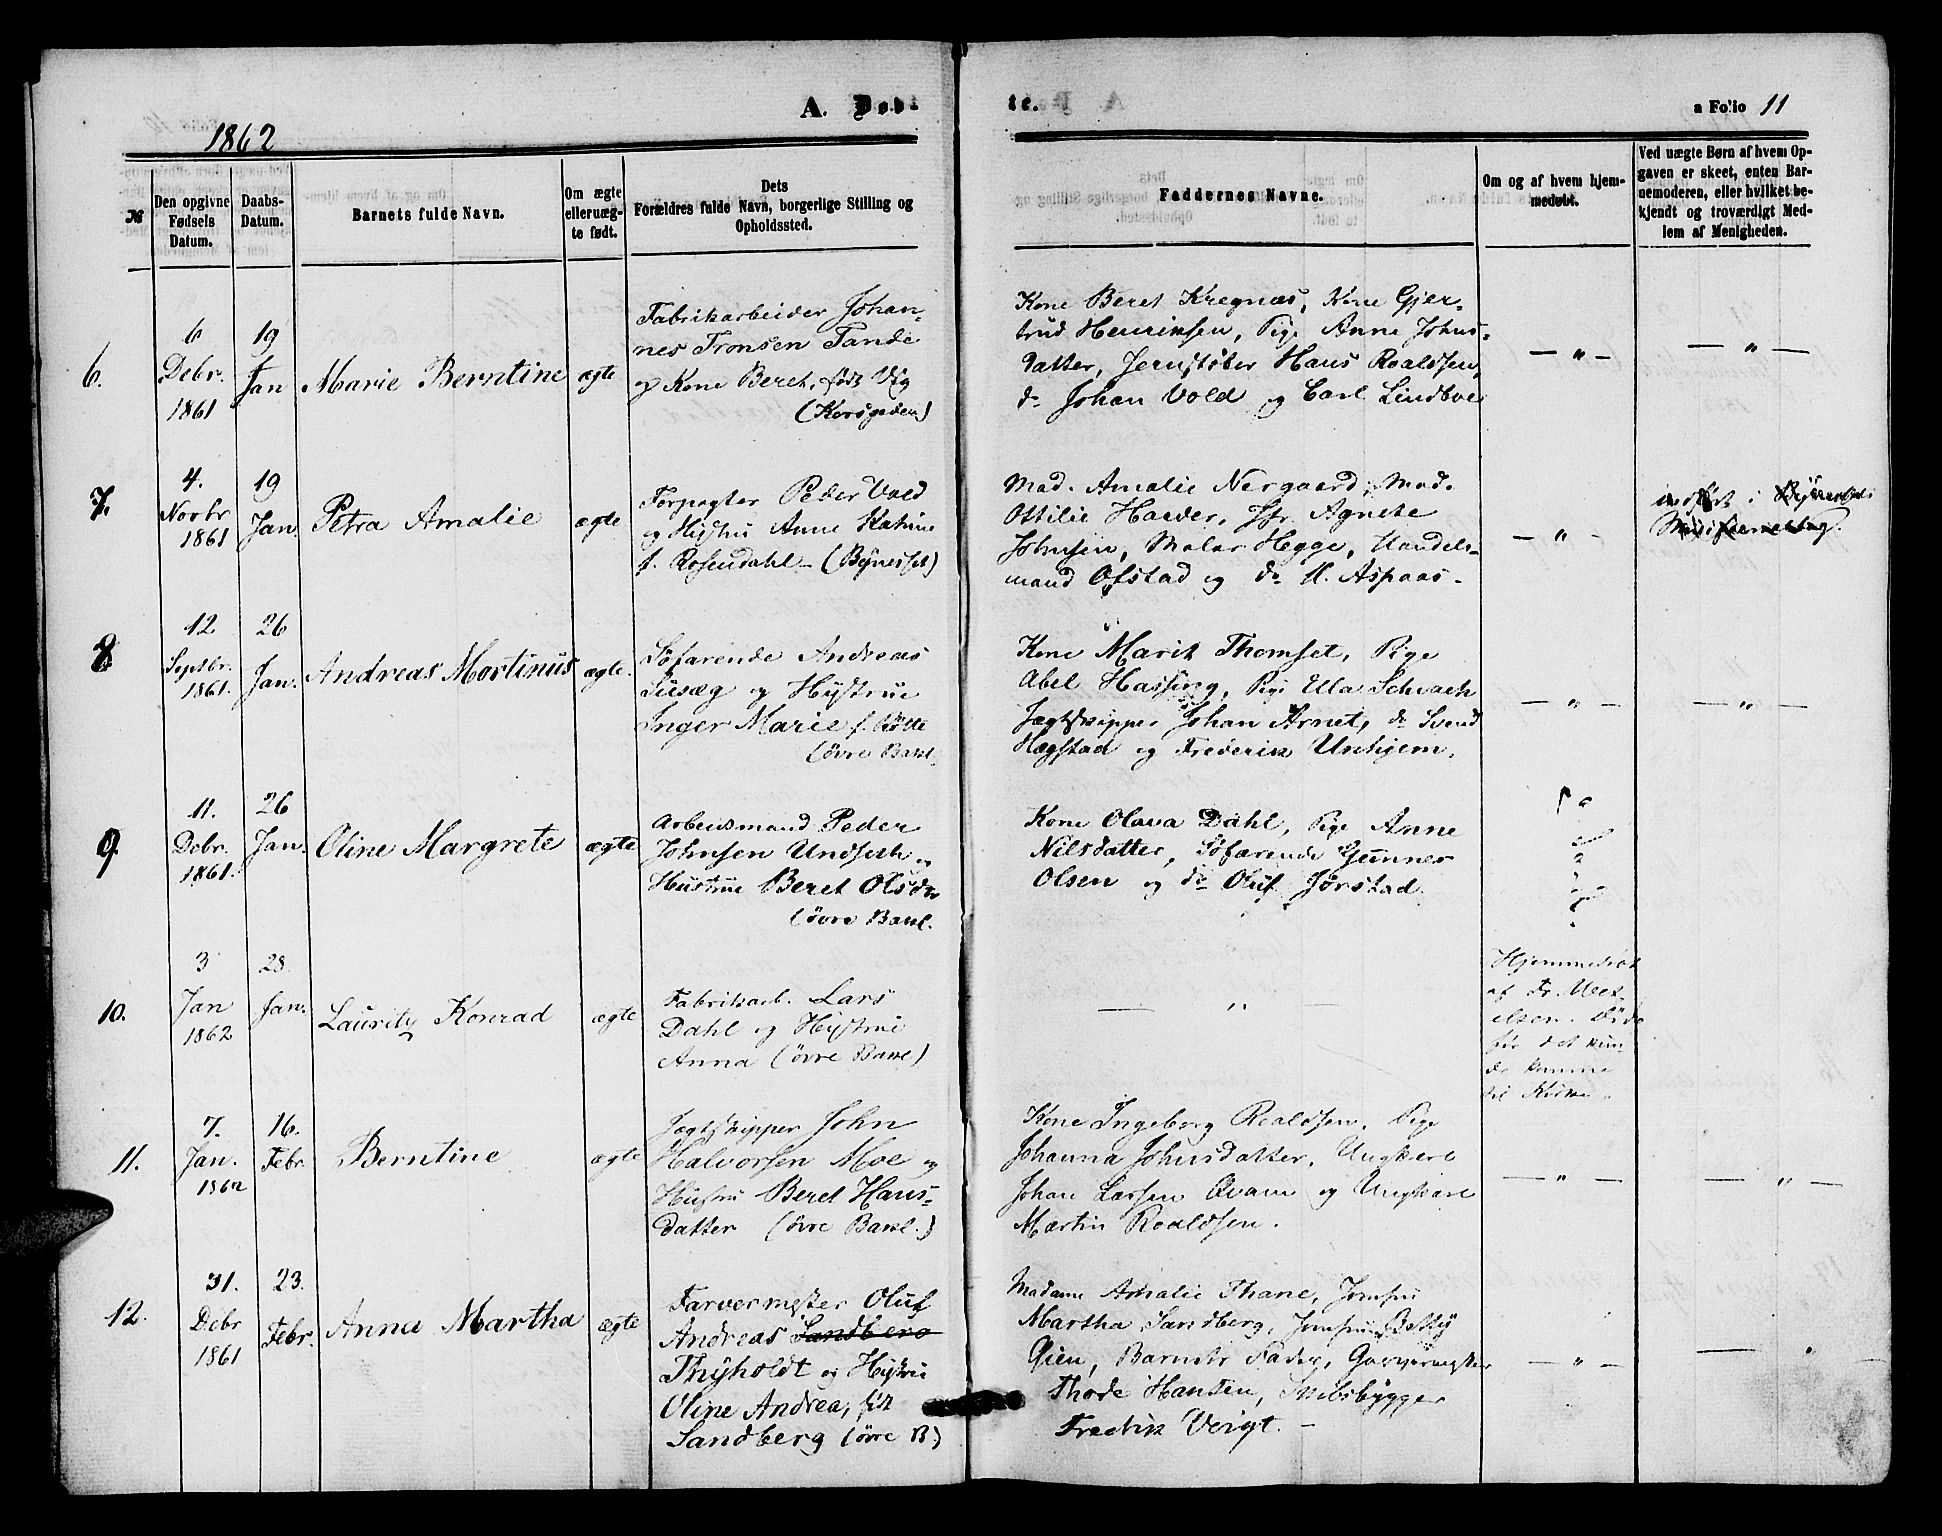 1862
A. Døb-
te.
a Folio 11
№
Den opgivne Fødsels Datum.
Daabs-Datum.
Barnets fulde Navn.
Om ægte eller uæg-te født.
Dets Forældres fulde Navn, borgerlige Stilling og Opholdssted.
Faddernes Navne.
Om og af hvem hjem-medøbt.
Ved uægte Børn af hvem Op-gaven er skeet, enten Bar-nemoderen, eller hvilket be-kjendt og troværdigt Med-lem af Menigheden.
6.
6 Debr. 1861
19 Jan
Marie Berntine
ægte
Fabrikarbeider Johan-
nes Tronsen Tande
og Kone Beret, født Vig
(Korsgaden)
Kone Beret Kregnæs, Kone Gjer-
trud Henriksen, Pige Anne Johns-
datter, Jernstøber Hans Roaldsen,
do Johan Vold og Carl Lindboe
— " —
— " —
7.
4. Novbr 1861
19 Jan.
Petra Amalie
ægte
Forpagter Peder Vold
og Hustru Anne Katrine
f. Rosendahl - (Bynesset)
Mad. Amalie Nergaard, Mad.
Ottilie Harder, Jfr. Agnete
Johnsen, Maler Hegge, Handels-
mand Ofstad og do M. Aspaas -
— " —
indført i
8
12 Septbr. 1861.
26 Jan.
Andreas Martinus
ægte.
Søfarende Andreas
Susæg og Hustrue
Inger Marie f. Røtte
(øvre Bakl.
Kone Marit Thomset, Pige
Abel Hassing, Pige Ula Schvach
Jagtskipper Johan Arnet, do Svend
Hegstad og Frederik Unhjem.
— " —
— " —
9
11. Debr. 1861.
26 Jan.
Oline Margrete
ægte
Arbeidsmand Peder
Johnsen Undseth og
Hustrue Beret Olsdtr
(øvre Bakl.
Kone Olava Dahl, Pige Anne
Nilsdatter, Søfarende Gunner
Olsen og do Oluf Jørstad.
10.
3 Jan 1862
28. Jan.
Lauritz Konrad
ægte
Fabrikarb. Lars
Dahl og Hustrue
Anna (øvre Bakl)
— " —
Hjemmedøbt
af Fr. Meet-
elsen. Døde
før det kun-
de komme
til Kirke.
11.
7. Jan. 1862
16. Febr.
Berntine
ægte
Jagtskipper John
Halvorsen Moe og
Hustru Beret Hans-
datter (øvre Bakl.)
Kone Ingeborg Roaldsen, Pige
Johanna Johnsdatter, Ungkarl
Johan Larsen Qvam og Ungkarl
Martin Roaldsen.
— " —
— " —
12.
31. Debr 1861
23. Febr.
Anna Martha
ægte
Farvermester Oluf
Andreas Sandberg
Thyholdt og Hustru
Oline Andrea, født
Sandberg (øvre B.)
Madame Amalie Thane, Jomfru
Martha Sandberg, Jomfru Betty
Qien, Barnets Fader, Garvermester
Thode Hansen, Skibsbygger
Fredrik Veigt. -
— " —
— "